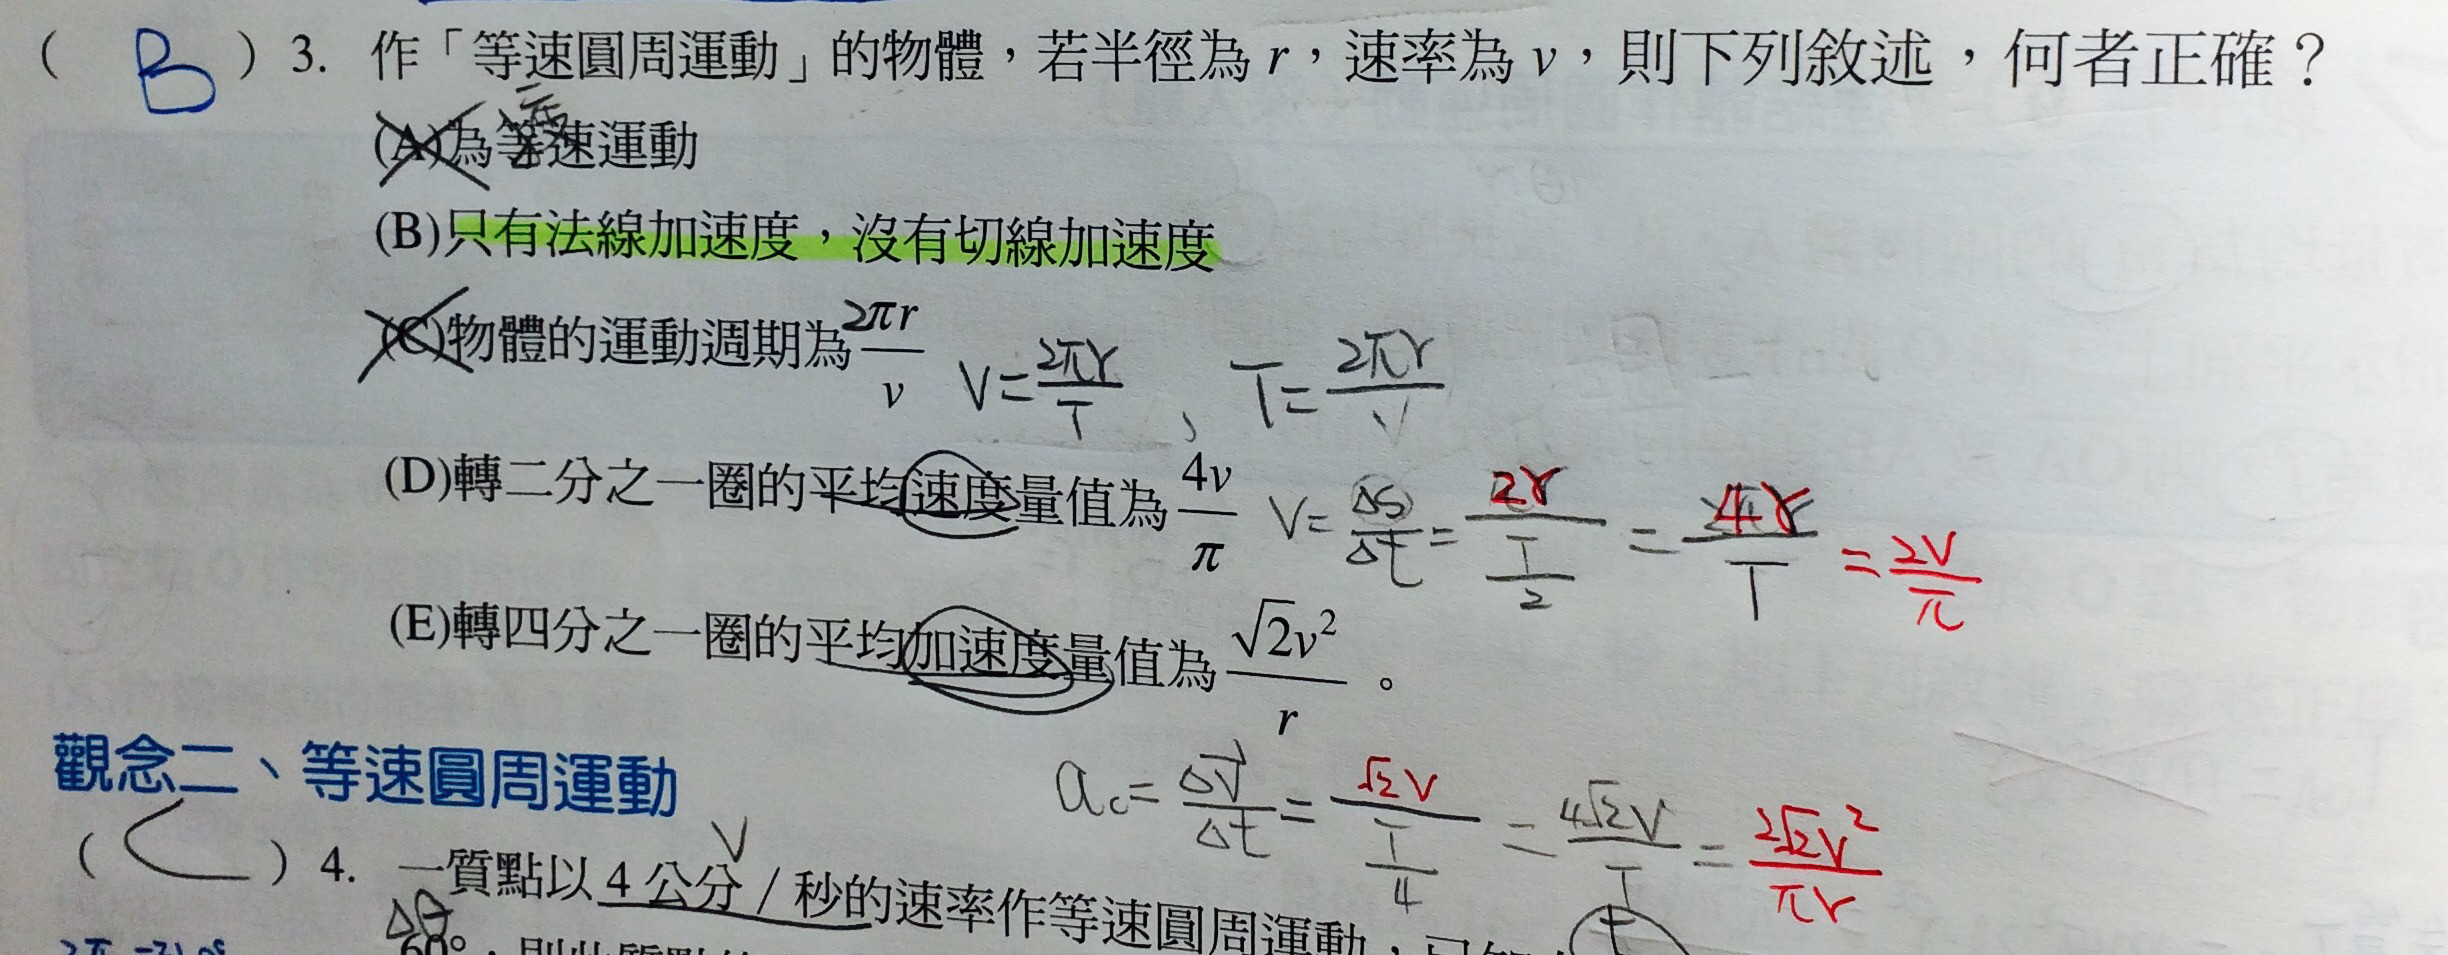 ( B ) 3. 作「等速圓周運動」的物體，若半徑為 r，速率為 v，則下列敘述，何者正確？
(A)為等速運動
(B)只有法線加速度，沒有切線加速度
(C)物體的運動週期為 2πr/v V=2πr/T、T=2πr/V
(D)轉二分之一圈的平均速度量值為 4v/π V=ΔS/Δt=2r/(T/2)=4r/T=2V/π
(E)轉四分之一圈的平均加速度量值為 √2v²/r。
觀念二、等速圓周運動
ac=ΔV/Δt=√2V/(T/4)=4√2V/T=2√2V²/πr
( C ) 4. 一質點以 4 公分／秒的速率作等速圓周運動，已知
V
Δθ
60°，則此質點的